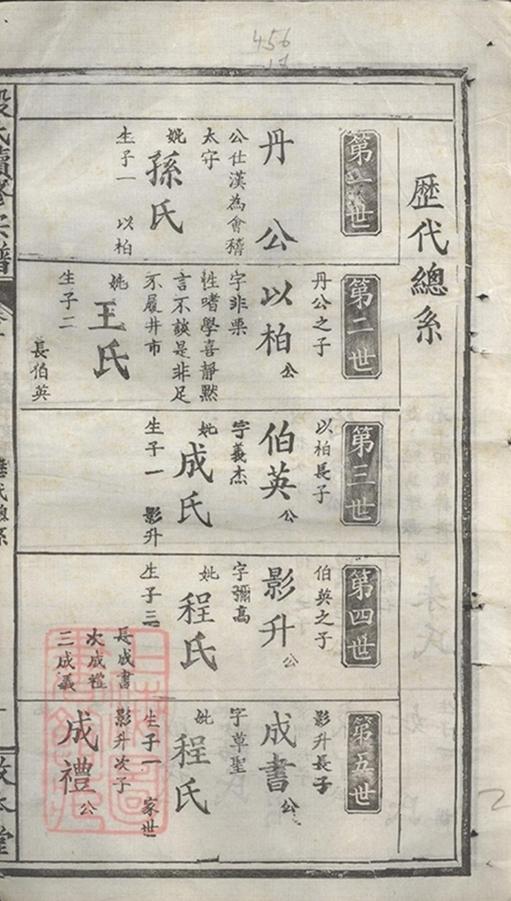 456
歷代總系
第一世
丹公
公仕漢為會稽
太守
妣孫氏
生子一 以柏
第二世
丹公之子
以柏公
字非栗
性嗜學喜靜默
言不談是非足
不履井市
妣王氏
生子二
長伯英
第三世
以柏長子
伯英公
字義杰
妣成氏
生子一 影升
第四世
伯英之子
影升公
字彌高
妣程氏
生子三
長成書
次成禮
三成義
第五世
影升長子
成書公
字草聖
妣程氏
生子一 家世
影升次子
成禮公
2